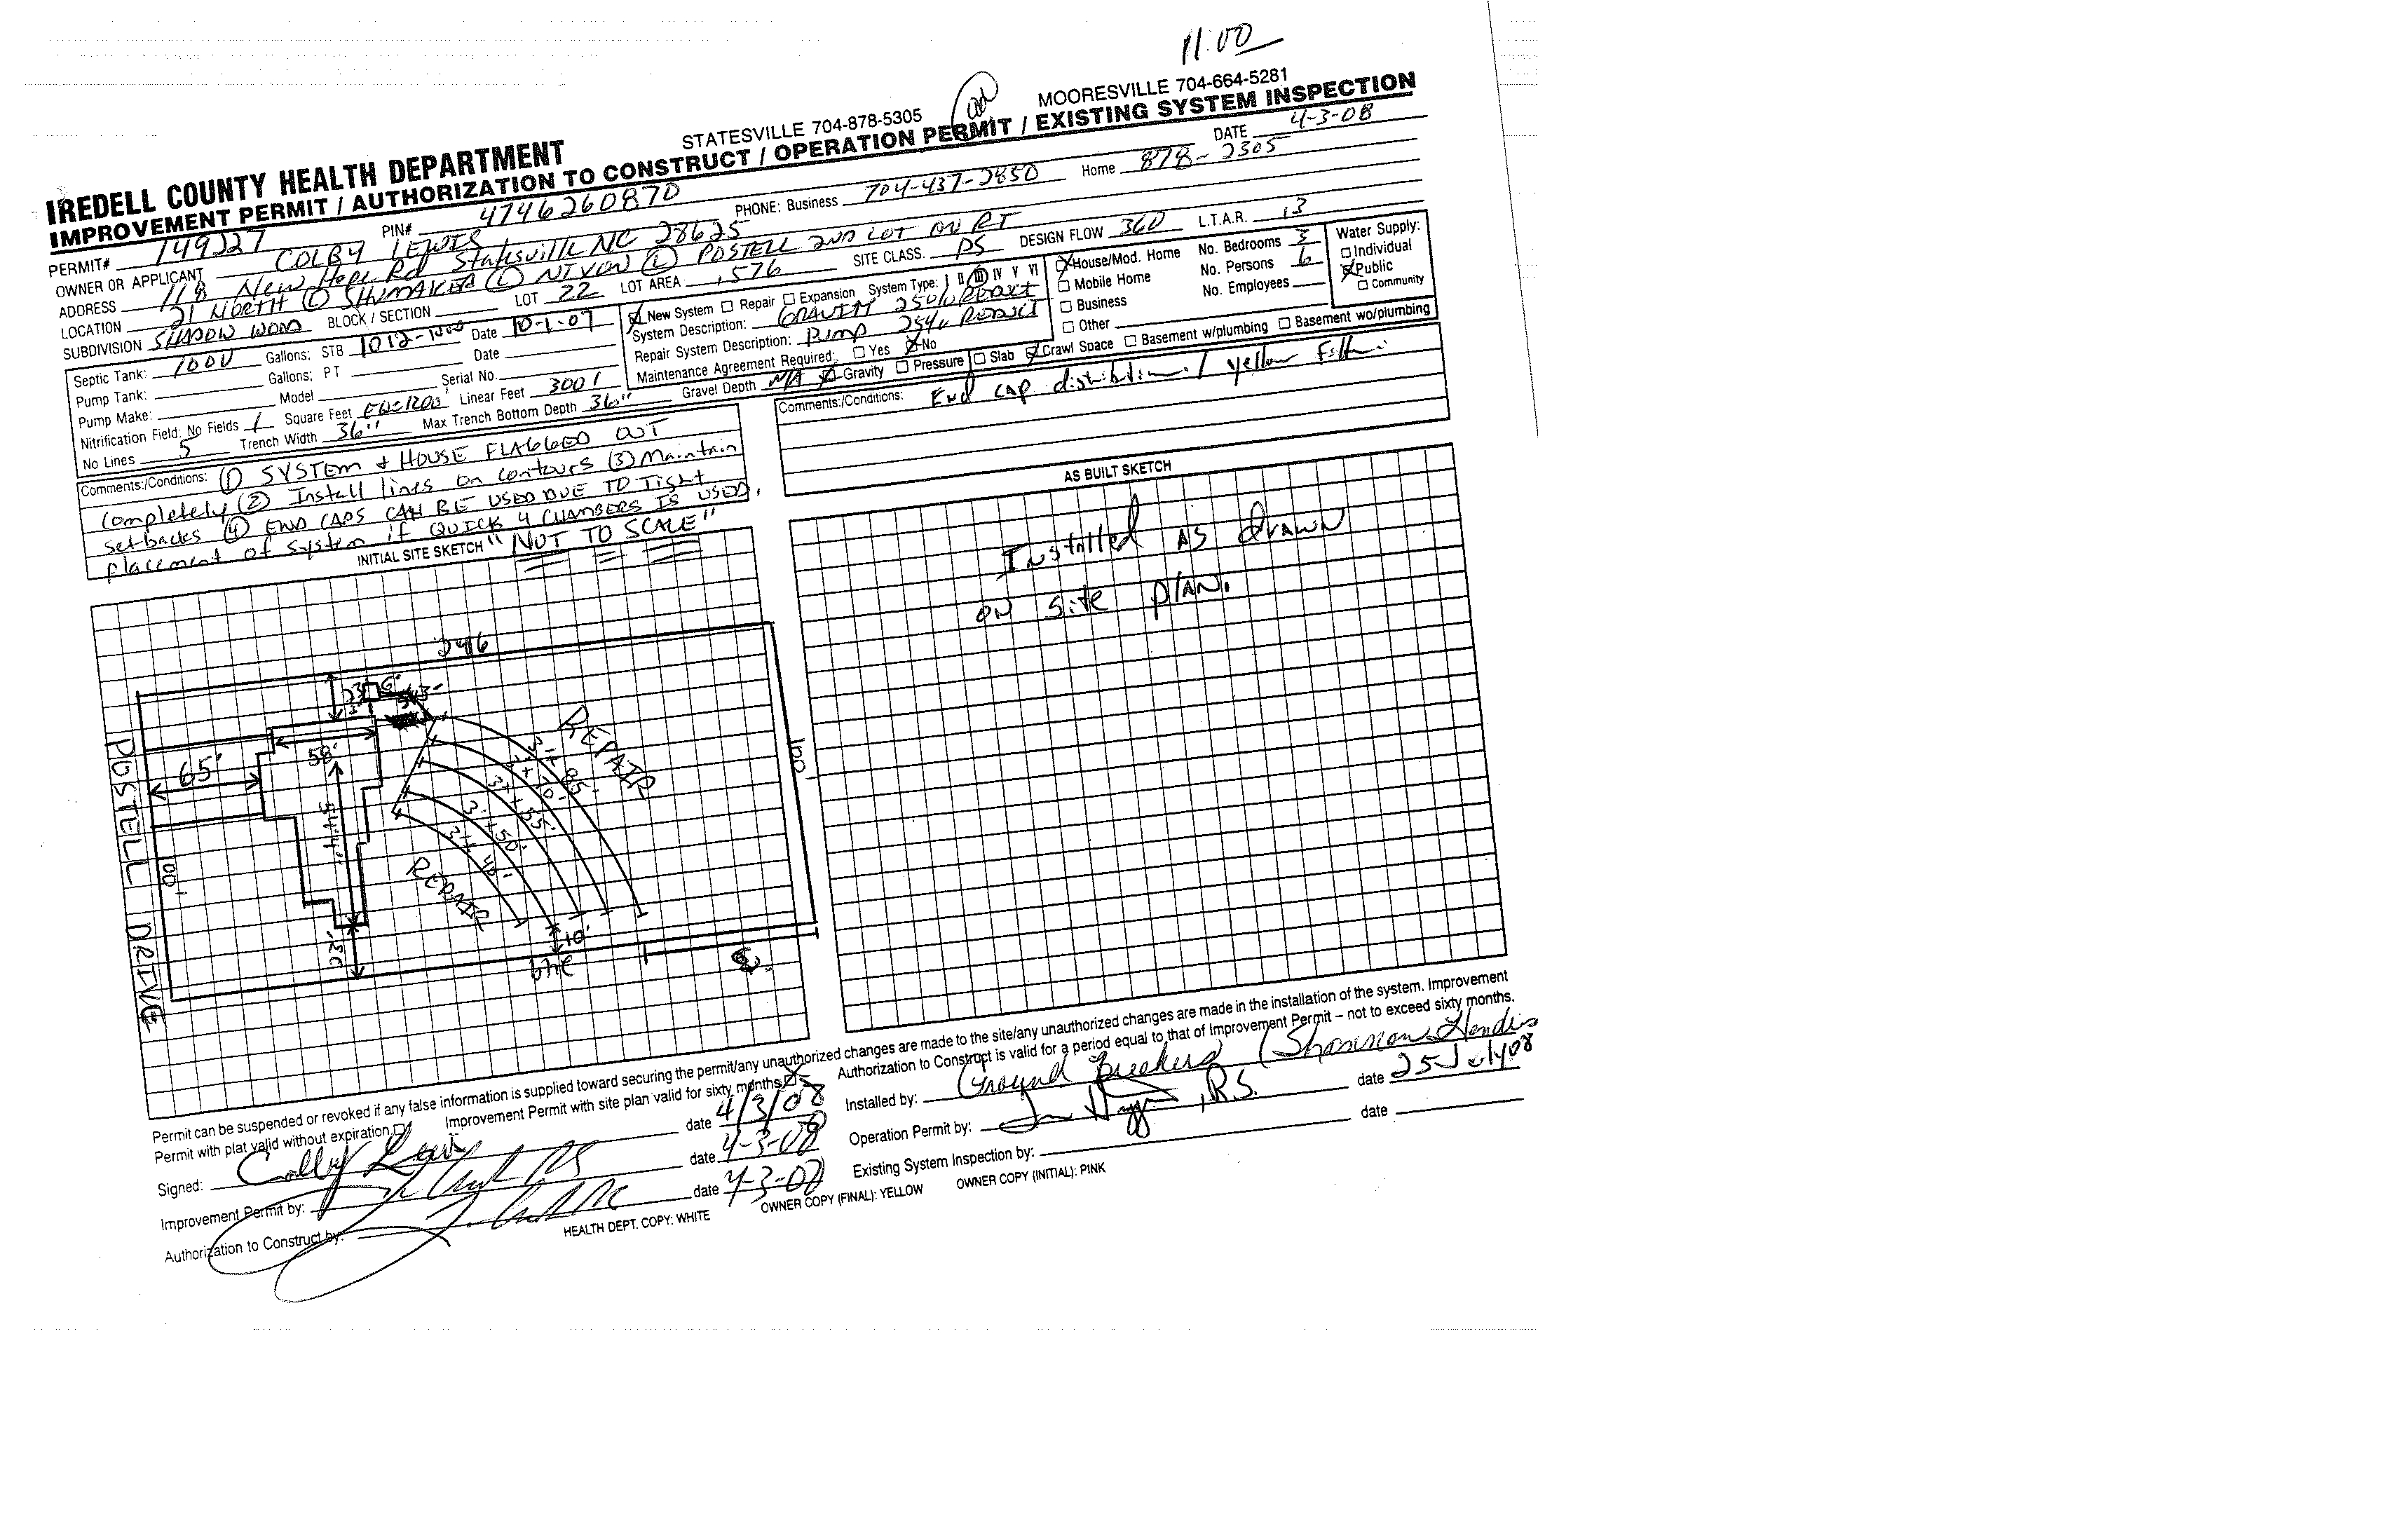 11:00
STATESVILLE 704-878-5305 MOORESVILLE 704-664-5281
IREDELL COUNTY HEALTH DEPARTMENT
IMPROVEMENT PERMIT / AUTHORIZATION TO CONSTRUCT / OPERATION PERMIT / EXISTING SYSTEM INSPECTION
PERMIT# 149227 PIN# 4746260870 PHONE: Business 704-437-2850 Home 878-2305 DATE 4-3-08
OWNER OR APPLICANT COLBY LEWIS
ADDRESS 118 New Hope Rd Statesville NC 28625
LOCATION 21 NORTH (L) SHUMAKER (L) NIXON (L) POSTELL 2ND LOT ON RT
SUBDIVISION SHADOW WOOD BLOCK / SECTION LOT 22 LOT AREA .576 SITE CLASS. PS DESIGN FLOW 360 L.T.A.R. .3
Septic Tank: 1000 Gallons: STB 1012-1000 Date 10-1-07
Pump Tank: Gallons: PT Date
Pump Make: Model Serial No.
Nitrification Field: No Fields 1 Square Feet Linear Feet 300'
No Lines 5 Trench Width 36" Max Trench Bottom Depth 36" Gravel Depth N/A Gravity Pressure
New System Repair Expansion System Type: I II III IV V VI
System Description: GRAVITY 25% REDUCT
Repair System Description: Pump 25% REDUCT
Maintenance Agreement Required: Yes No
House/Mod. Home No. Bedrooms 3
Mobile Home No. Persons 6
Business No. Employees
Other
Slab Crawl Space Basement w/plumbing Basement wo/plumbing
Water Supply:
Individual
Public
Community
Comments:/Conditions: (1) SYSTEM + HOUSE FLAGGED OUT
completely (2) Install lines on contours (3) Maintain
setbacks (4) END CAPS CAN BE USED DUE TO Tight
placement of system if QUICK 4 CHAMBERS IS USED.
INITIAL SITE SKETCH "NOT TO SCALE"
Comments:/Conditions: End cap distribution / yellow
AS BUILT SKETCH
Installed AS drawn
on Site plan.
POSTELL DRIVE
246
100'
100'
65'
58'
54'4"
23'
REPAIR
REPAIR
10'
246
Permit can be suspended or revoked if any false information is supplied toward securing the permit/any unauthorized changes are made to the site/any unauthorized changes are made in the installation of the system. Improvement
Permit with plat valid without expiration. Improvement Permit with site plan valid for sixty months. Authorization to Construct is valid for a period equal to that of Improvement Permit – not to exceed sixty months.
Signed: Colby Lewis date 4/3/08
Improvement Permit by: RS date 4-3-08
Authorization to Construct by: date 4-3-08
Installed by: Ground Breakers (Shannon
Operation Permit by: R.S. date 25 July 08
Existing System Inspection by: date
HEALTH DEPT. COPY: WHITE OWNER COPY (FINAL): YELLOW OWNER COPY (INITIAL): PINK